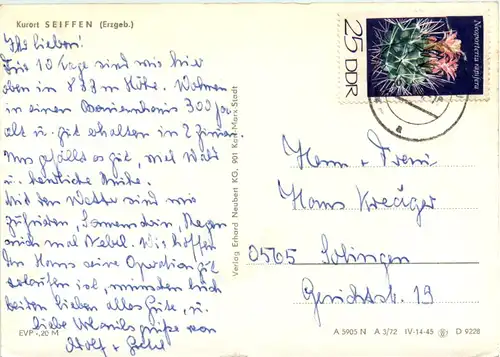 Kurort SEIFFEN (Erzgeb.)
Ihr Lieben!
Für 10 Tage sind wir hier
oben in 833 m Höhe. Wohnen
in einem 300 Ja.
alt u. gut erhalten in 2 Zimmer.
Uns gefällts es gut, viel Wald
u. herrliche Ruhe.
Mit dem Wetter sind wir
zufrieden, Sonnenschein, Regen
auch mal Nebel. Wir hoffen
Hans seine Operation gut
verlaufen ist, wünschen euch
beiden Lieben alles Gute, u.
liebe Urlaubsgrüße von
Adolf +
EVP -,20 M
Verlag Erhard Neubert KG, 901 Karl-Marx-Stadt
25 DDR
Neoporteria rapifera
Herrn + Frau
Hans Kreuger
0565 Solingen
Gerichtstr. 19
A 5905 N A 3/72 IV-14-45 D 9228